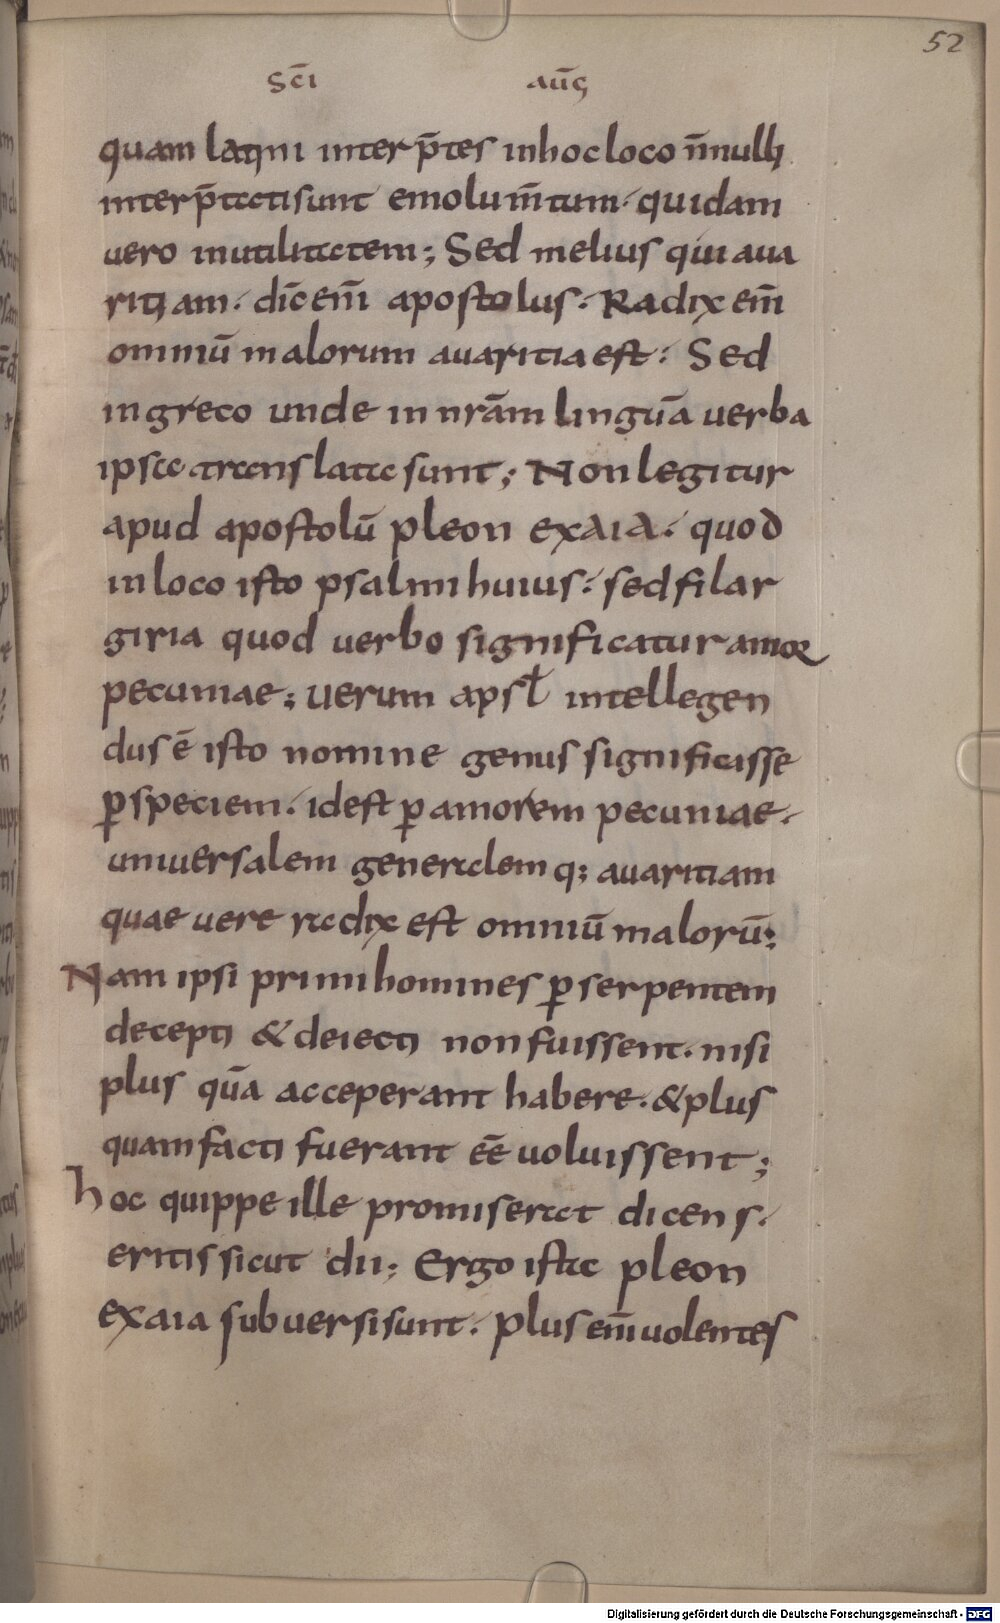 52
sc̄i aūg
quam latini interp̄tes inhocloco n̄nulli
interp̄tatisunt emolum̄tum· quidam
uero inutilitatem; Sed melius qui aua
ritiam· dic̄ em̄ apostolus· Radix em̄
omniū malorum auaritia est· Sed
ingreco unde in nrām lingūa uerba
ipsa translata sunt; Non legitur
apud apostolū pleon exaia· quod
inloco isto psalmi huius· sed filar
giria quod uerbo significatur amor
pecuniae; uerum apsł intellegen
dus ē isto nomine genus significasse
ꝑ speciem· idest ꝑ amorem pecuniae·
uniuersalem generalem q; auaritiam
quae uere radix est omniū malorū;
Nam ipsi primi homines ꝑ serpentem
decepti & deiecti non fuissent· nisi
plus qūa acceperant habere· & plus
quam facti fuerant eē uoluissent;
hoc quippe ille promiserat dicens·
eritis sicut dii; Ergo ista pleon
exaia subuersi sunt· plus em̄ uolentes
Digitalisierung gefördert durch die Deutsche Forschungsgemeinschaft - DFG